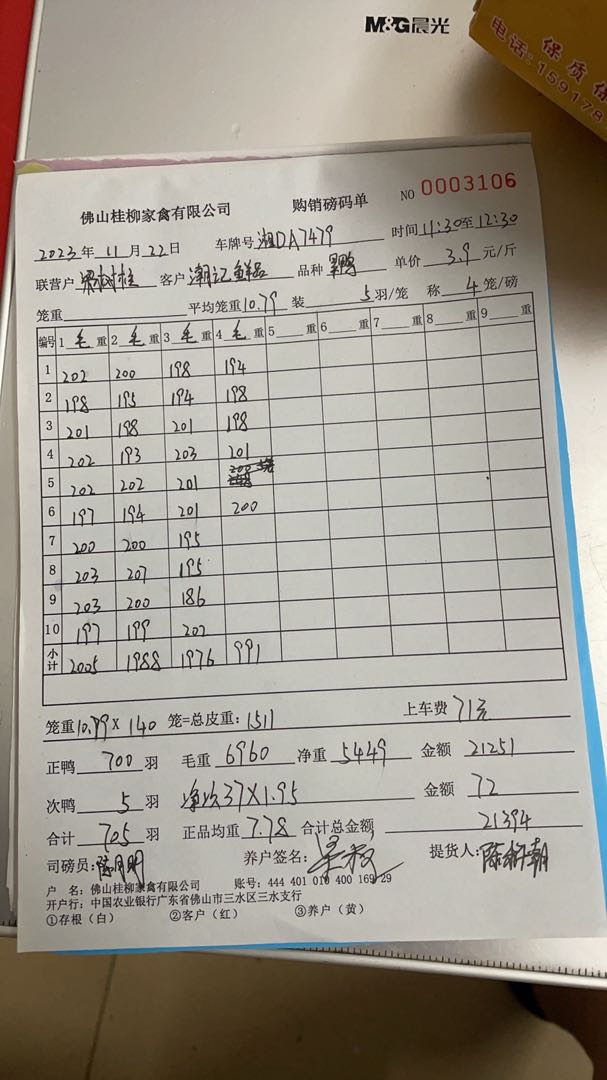 M&G晨光
保质保
电话:159178
佛山桂柳家禽有限公司 购销磅码单 NO 0003106
2023年 11月 22日 车牌号 湘DA7479 时间 11:30至 12:30
联营户 客户 潮记鲜品 品种 单价 3.9 元/斤
笼重 平均笼重 10.79 装 5 羽/笼 称 4 笼/磅
编号 1 毛 重 2 毛 重 3 毛 重 4 毛 重 5 重 6 重 7 重 8 重 9 重
1 202 200 198 194
2 198 195 194 198
3 201 198 201 198
4 202 193 203 201
5 202 202 201
6 197 194 201 200
7 200 200 195
8 203 207 195
9 203 200 186
10 197 199 202
小计 2005 1988 1976 991
笼重 10.79 X 140 笼=总皮重: 1511 上车费 71元
正鸭 700 羽 毛重 6960 净重 5449 金额 21251
次鸭 5 羽 37X1.95 金额 72
合计 705 羽 正品均重 7.78 合计总金额 21394
司磅员: 养户签名: 提货人:
户 名: 佛山桂柳家禽有限公司 账号: 444 401 010 400 169 29
开户行: 中国农业银行广东省佛山市三水区三水支行
①存根(白) ②客户(红) ③养户(黄)